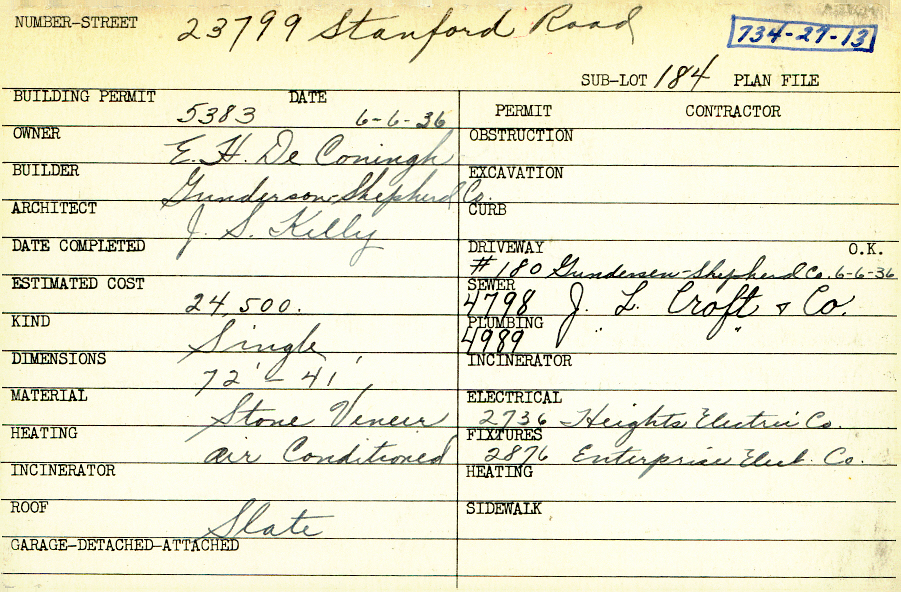 NUMBER-STREET 23799 Stanford Road
734-27-13
SUB-LOT 184 PLAN FILE
BUILDING PERMIT 5383 DATE 6-6-36
OWNER E. H. De Coningh
BUILDER Gunderson-Shepherd Co.
ARCHITECT J. S. Kelly
DATE COMPLETED
ESTIMATED COST 24,500.
KIND Single
DIMENSIONS 72' - 41'
MATERIAL Stone Veneer
HEATING Air Conditioned
INCINERATOR
ROOF Slate
GARAGE-DETACHED-ATTACHED
PERMIT CONTRACTOR
OBSTRUCTION
EXCAVATION
CURB
DRIVEWAY O.K.
# 180 Gundersen-Shepherd Co. 6-6-36
SEWER
4798 J. L. Croft & Co.
PLUMBING
4989 " "
INCINERATOR
ELECTRICAL
2736 Heights Electric Co.
FIXTURES
2876 Enterprise Elect. Co.
HEATING
SIDEWALK